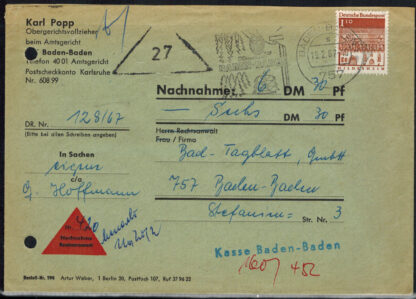 Karl Popp
Obergerichtsvollzieher
beim Amtsgericht
Baden-Baden
Telefon 4001 Amtsgericht
Postscheckkonto Karlsruhe
Nr. 608 99
27
Deutsche Bundespost
Nachnahme: 6 DM 30 Pf
Sechs DM 30 Pf
DR. Nr. 128/67
(Bitte bei allen Schreiben angeben)
Herrn Rechtsanwalt
Frau / Firma
In Sachen
c/a
G. Hoffmann
Bad. Tagblatt, GmbH
757 Baden-Baden
Str. Nr. 3
Nr. 420
Nachnahme
Remboursement
Kasse Baden-Baden
Bestell-Nr. 196 Artur Weber, 1 Berlin 30, Postfach 107, Ruf 37 96 22